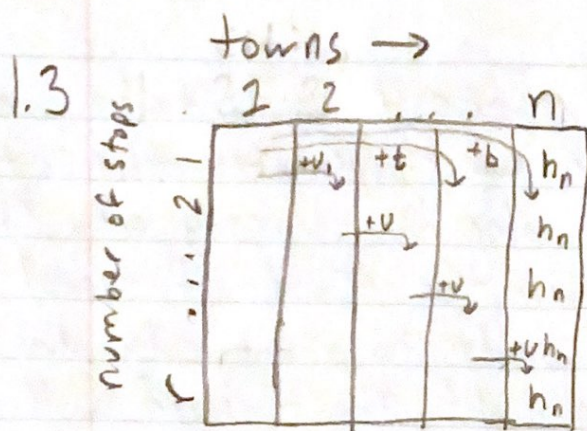 towns →
1.3
1 2 . . . n
number of stops
1 2 ... r
+v, +t +b hn
+v hn
+v hn
+v hn
hn